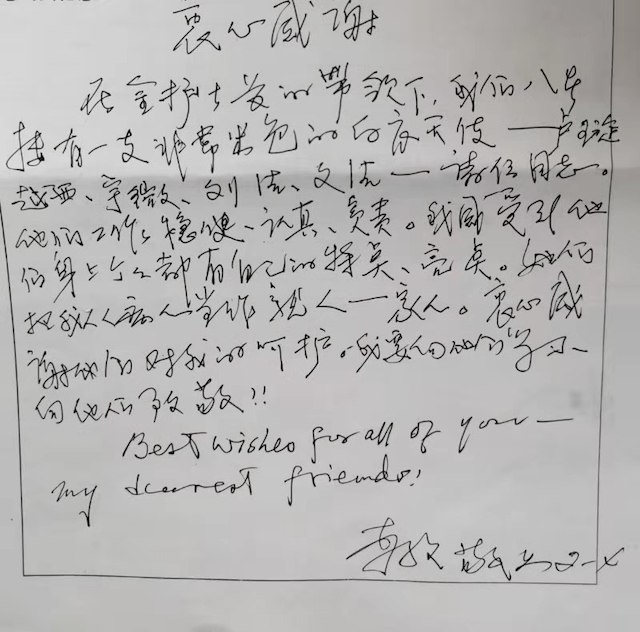 衷心感谢
在金护士长的带领下,我们八步
拥有一支非常出色的白衣天使——
、文洁—诸位同志。
他们工作稳健、认真、负责。我感受到他
们身上个个都有自己的特点、亮点。她们
把我们病人当作亲人一家人。衷心感
谢他们对我的呵护。我要向他们学习、
向他们致敬!!
Best wishes for all of you—
my dearest friends!
敬上